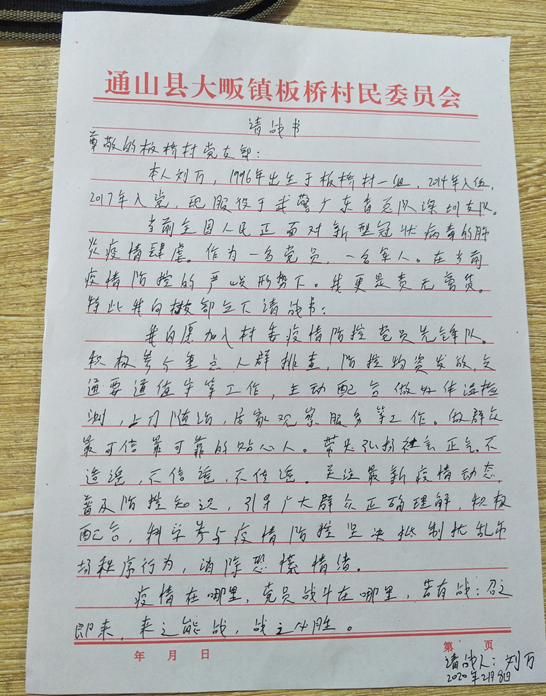 通山县大畈镇板桥村民委员会
请战书
尊敬的板桥村党支部：
本人刘万，1996年出生于板桥村一组，2014年入伍，
2017年入党，现服役于武警广东省总队深圳支队。
当前全国人民正面对新型冠状病毒的肺
炎疫情肆虐。作为一名党员，一名军人。在当前
疫情防控的严峻形势下。我更是责无旁贷。
特此我向支部立下请战书：
我自愿加入村委疫情防控党员先锋队。
积极参与重点人群排查，防控物资发放，交
通要道值守等工作，主动配合做好体温检
测，上门值治，居家观察服务等工作。做群众
最可信最可靠的贴心人。带头弘扬社会正气，不
造谣，不信谣，不传谣。关注最新疫情动态，
普及防控知识，引导广大群众正确理解，积极
配合，科学参与疫情防控坚决抵制扰乱市
场秩序行为，消除恐慌情绪。
疫情在哪里，党员战斗在哪里，若有战：召之
即来，来之能战，战之必胜。
年 月 日
第 页
请战人：刘万
2020年2月8日